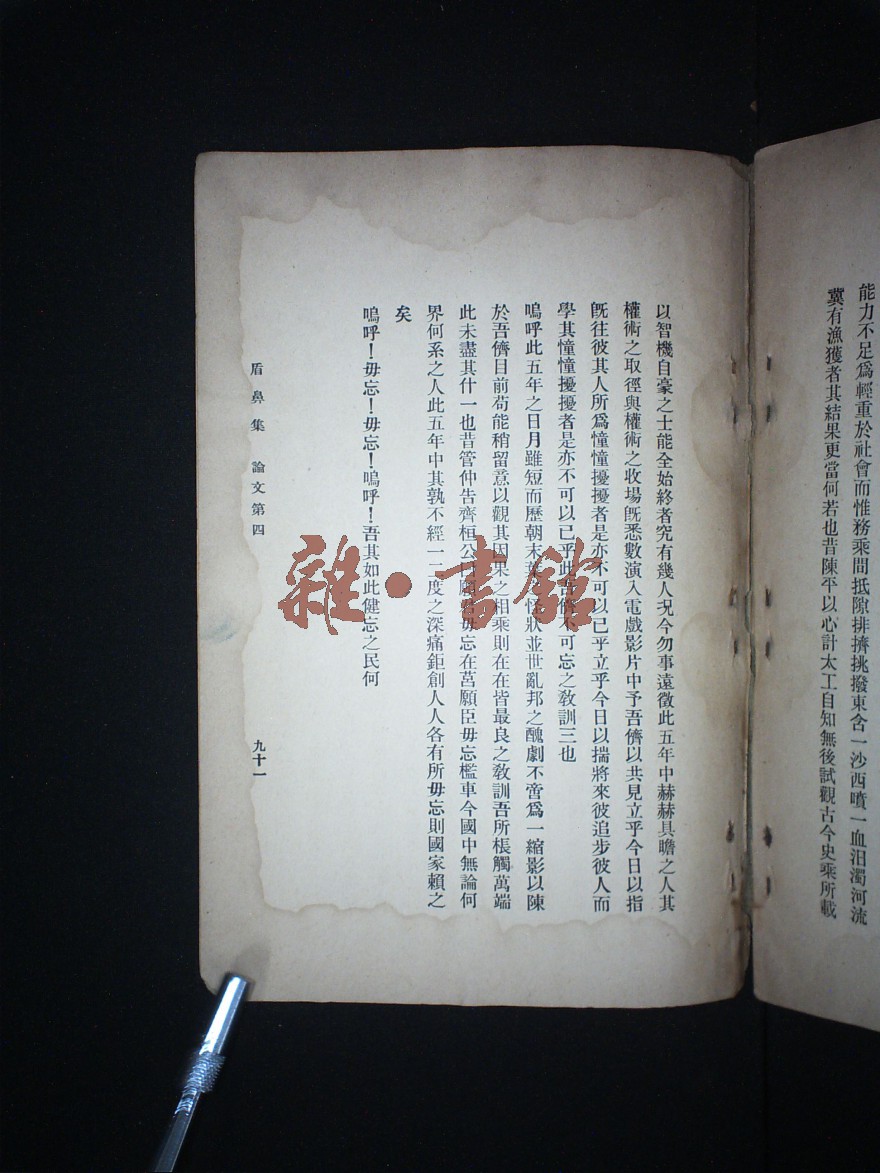 能力不足爲輕重於社會而惟務乘間抵隙排擠挑撥東含一沙西噴一血汨濁河流
冀有漁獲者其結果更當何若也昔陳平以心計太工自知無後試觀古今史乘所載
以智機自豪之士能全始終者究有幾人况今勿事遠徵此五年中赫赫具瞻之人其
權術之取徑與權術之收場旣悉數演入電戲影片中予吾儕以共見立乎今日以指
旣往彼其人所爲憧憧擾擾者是亦不可以已乎立乎今日以揣將來彼追步彼人而
學其憧憧擾擾者是亦不可以已乎此吾儕不可忘之敎訓三也
嗚呼此五年之日月雖短而歷朝末葉之怪狀並世亂邦之醜劇不啻爲一縮影以陳
於吾儕目前苟能稍留意以觀其因果之相乘則在在皆最良之敎訓吾所棖觸萬端
此未盡其什一也昔管仲告齊桓公曰願君毋忘在莒願臣毋忘檻車今國中無論何
界何系之人此五年中其孰不經一二度之深痛鉅創人人各有所毋忘則國家賴之
矣
嗚呼！毋忘！毋忘！嗚呼！吾其如此健忘之民何
盾鼻集 論文第四 九十一
雜·書館